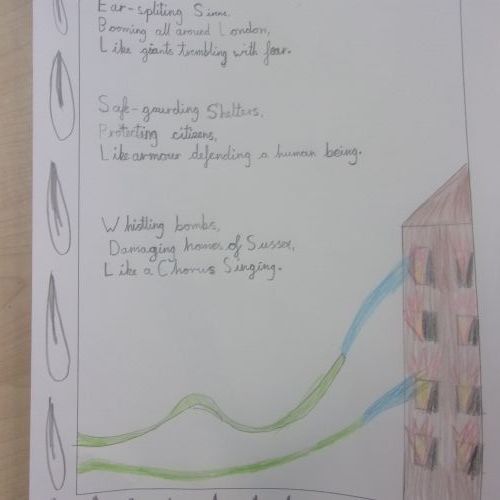 Ear-spliting Sirens,
Booming all around London,
Like giants trembling with fear.
Safe-gaurding Shelters,
Protecting citizens,
Like armour defending a human being.
Whistling bombs,
Damaging homes of Sussex,
Like a Chorus Singing.